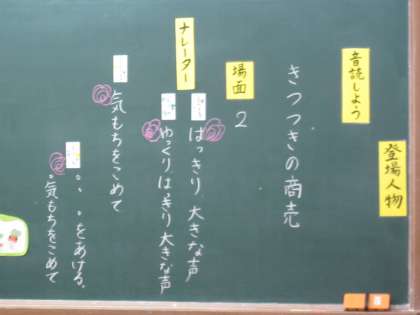 登場人物
音読しよう
きつつきの商売
場面
2
ナレーター
はっきり大きな声
ゆっくり、はっきり大きな声
気もちをこめて
。、。、をあける。
。気もちをこめて